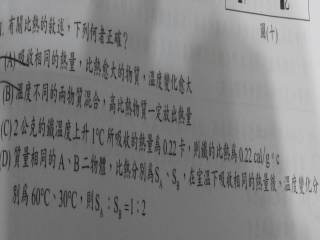 圖(十)
1. 有關比熱的敘述,下列何者正確?
(A) 吸收相同的熱量,比熱愈大的物質,溫度變化愈大
(B) 溫度不同的兩物質混合,高比熱物質一定放出熱量
(C) 2 公克的鐵溫度上升 1°C 所吸收的熱量為 0.22 卡,則鐵的比熱為 0.22 cal/g °C
(D) 質量相同的 A、B 二物體,比熱分別為 S_A、S_B,在室溫下吸收相同的熱量後,溫度變化分
別為 60°C、30°C,則 S_A:S_B = 1:2